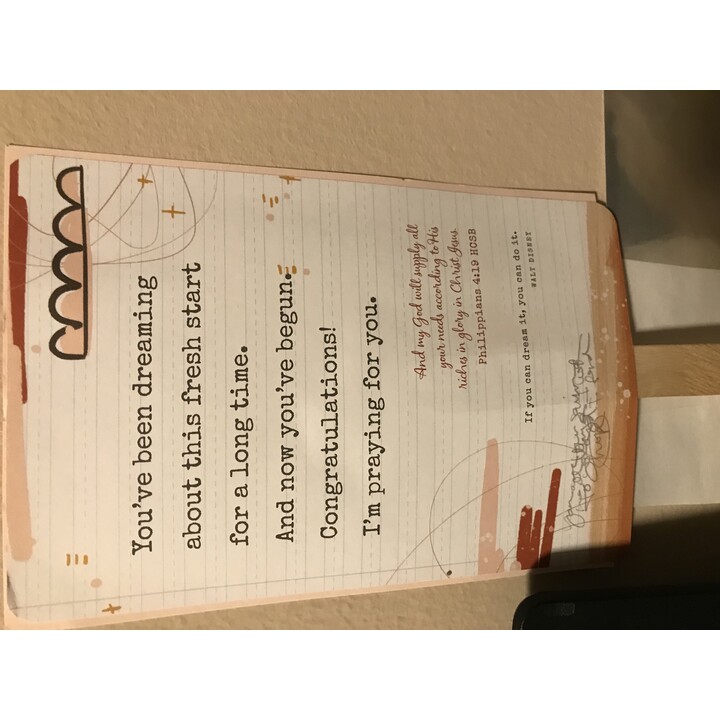 You've been dreaming
about this fresh start
for a long time.
And now you've begun.
Congratulations!
I'm praying for you.
And my God will supply all
your needs according to His
riches in glory in Christ Jesus.
Philippians 4:19 HCSB
If you can dream it, you can do it.
WALT DISNEY